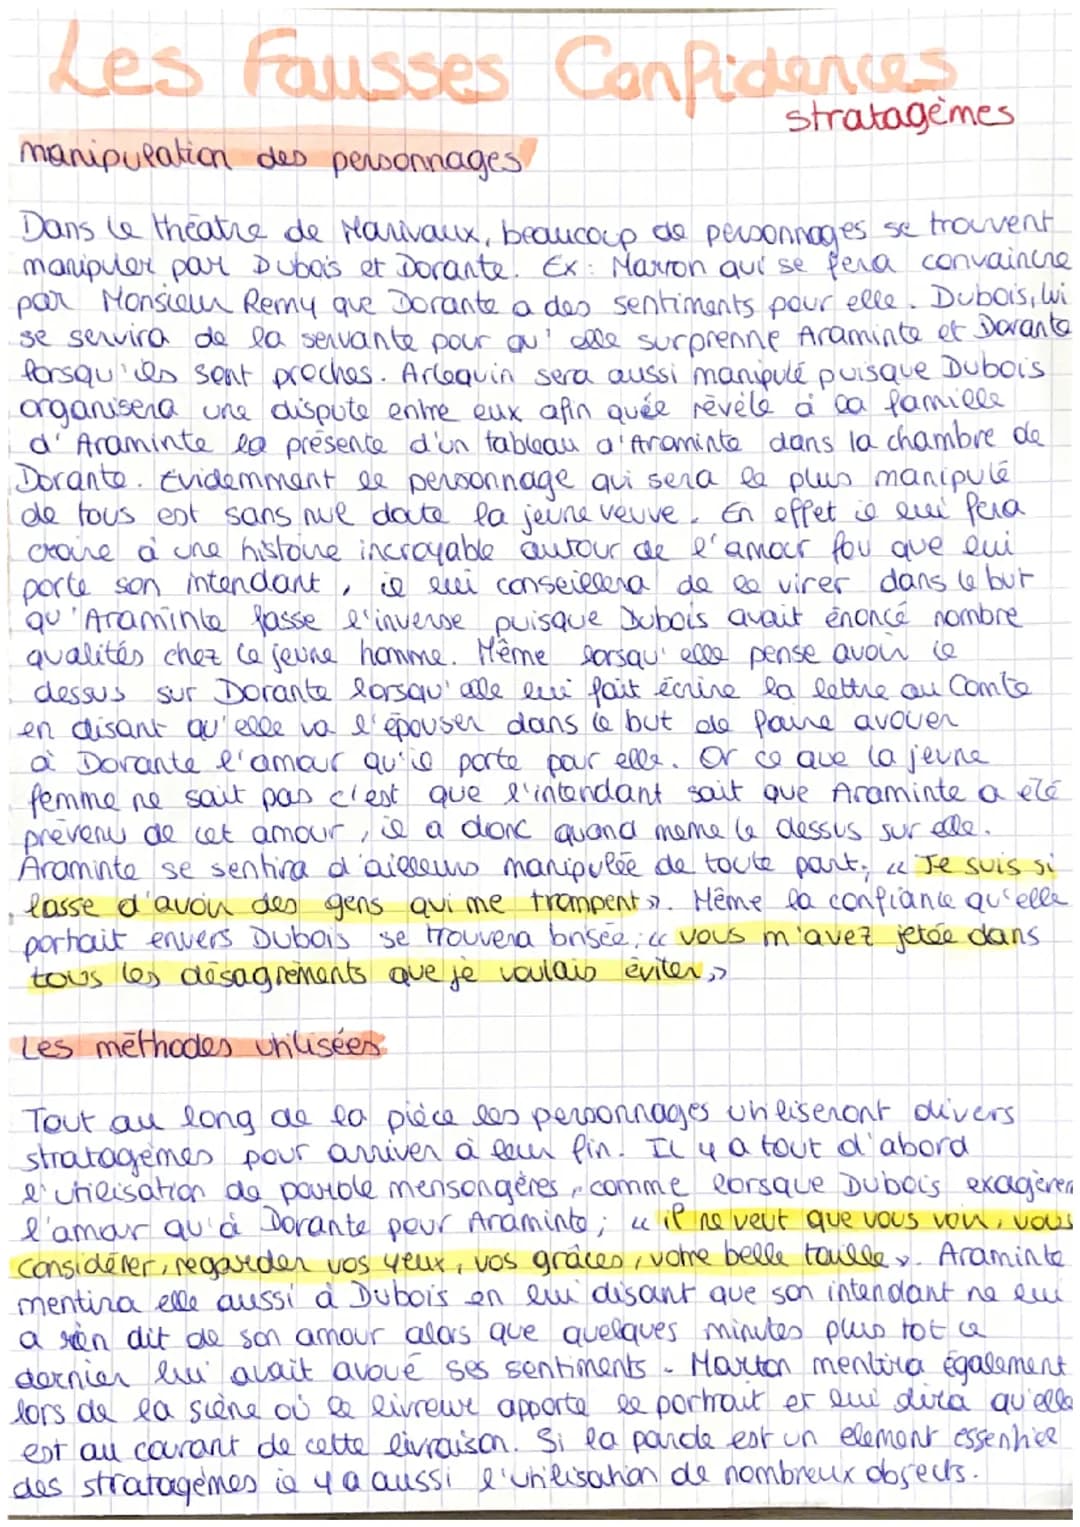 Les Fausses Confidences
stratagèmes
manipulation des personnages
Dans le théatre de Marivaux, beaucoup de personnages se trouvent
manipuler par Dubois et Dorante. Ex : Marton qui se fera convaincre
par Monsieur Remy que Dorante a des sentiments pour elle. Dubois, lui
se servira de la servante pour qu' elle surprenne Araminte et Dorante
lorsqu'ils sont proches. Arlequin sera aussi manipulé puisque Dubois
organisera une dispute entre eux afin qu'il révèle à la famille
d' Araminte la présente d'un tableau d'Araminte dans la chambre de
Dorante. Evidemment le personnage qui sera le plus manipulé
de tous est sans nul doute la jeune veuve. En effet il lui fera
croire à une histoire incroyable autour de l'amour fou que lui
porte son intendant, il lui conseillera de le virer dans le but
qu'Araminte fasse l'inverse puisque Dubois avait énoncé nombre
qualités chez le jeune homme. Même lorsqu' elle pense avoir le
dessus sur Dorante lorsqu' elle lui fait écrire la lettre au Comte
en disant qu'elle va l'épouser dans le but de faire avouer
à Dorante l'amour qu'il porte pour elle. Or ce que la jeune
femme ne sait pas c'est que l'intendant sait que Araminte a été
prévenu de cet amour, il a donc quand meme le dessus sur elle.
Araminte se sentira d'ailleurs manipulée de toute part; « Je suis si
lasse d'avoir des gens qui me trompent ». Même la confiance qu'elle
portait envers Dubois se trouvera brisée; « vous m'avez jetée dans
tous les désagréments que je voulais éviter »
Les méthodes utilisées
Tout au long de la pièce les personnages utiliseront divers
stratagèmes pour arriver à leur fin. Il y a tout d'abord
l'utilisation de parole mensongères, comme lorsque Dubois exagèrer
l'amour qu'à Dorante pour Araminte; « il ne veut que vous voir, vous
considérer, regarder vos yeux, vos grâces, votre belle taille ». Araminte
mentira elle aussi à Dubois en lui disant que son intendant ne lui
a rien dit de son amour alors que quelques minutes plus tot ce
dernier lui avait avoué ses sentiments. Marton mentira également
lors de la scène où le livreur apporte le portrait et lui dira qu'elle
est au courant de cette livraison. Si la parole est un element essentiel
des stratagèmes il y a aussi l'utilisation de nombreux objects.